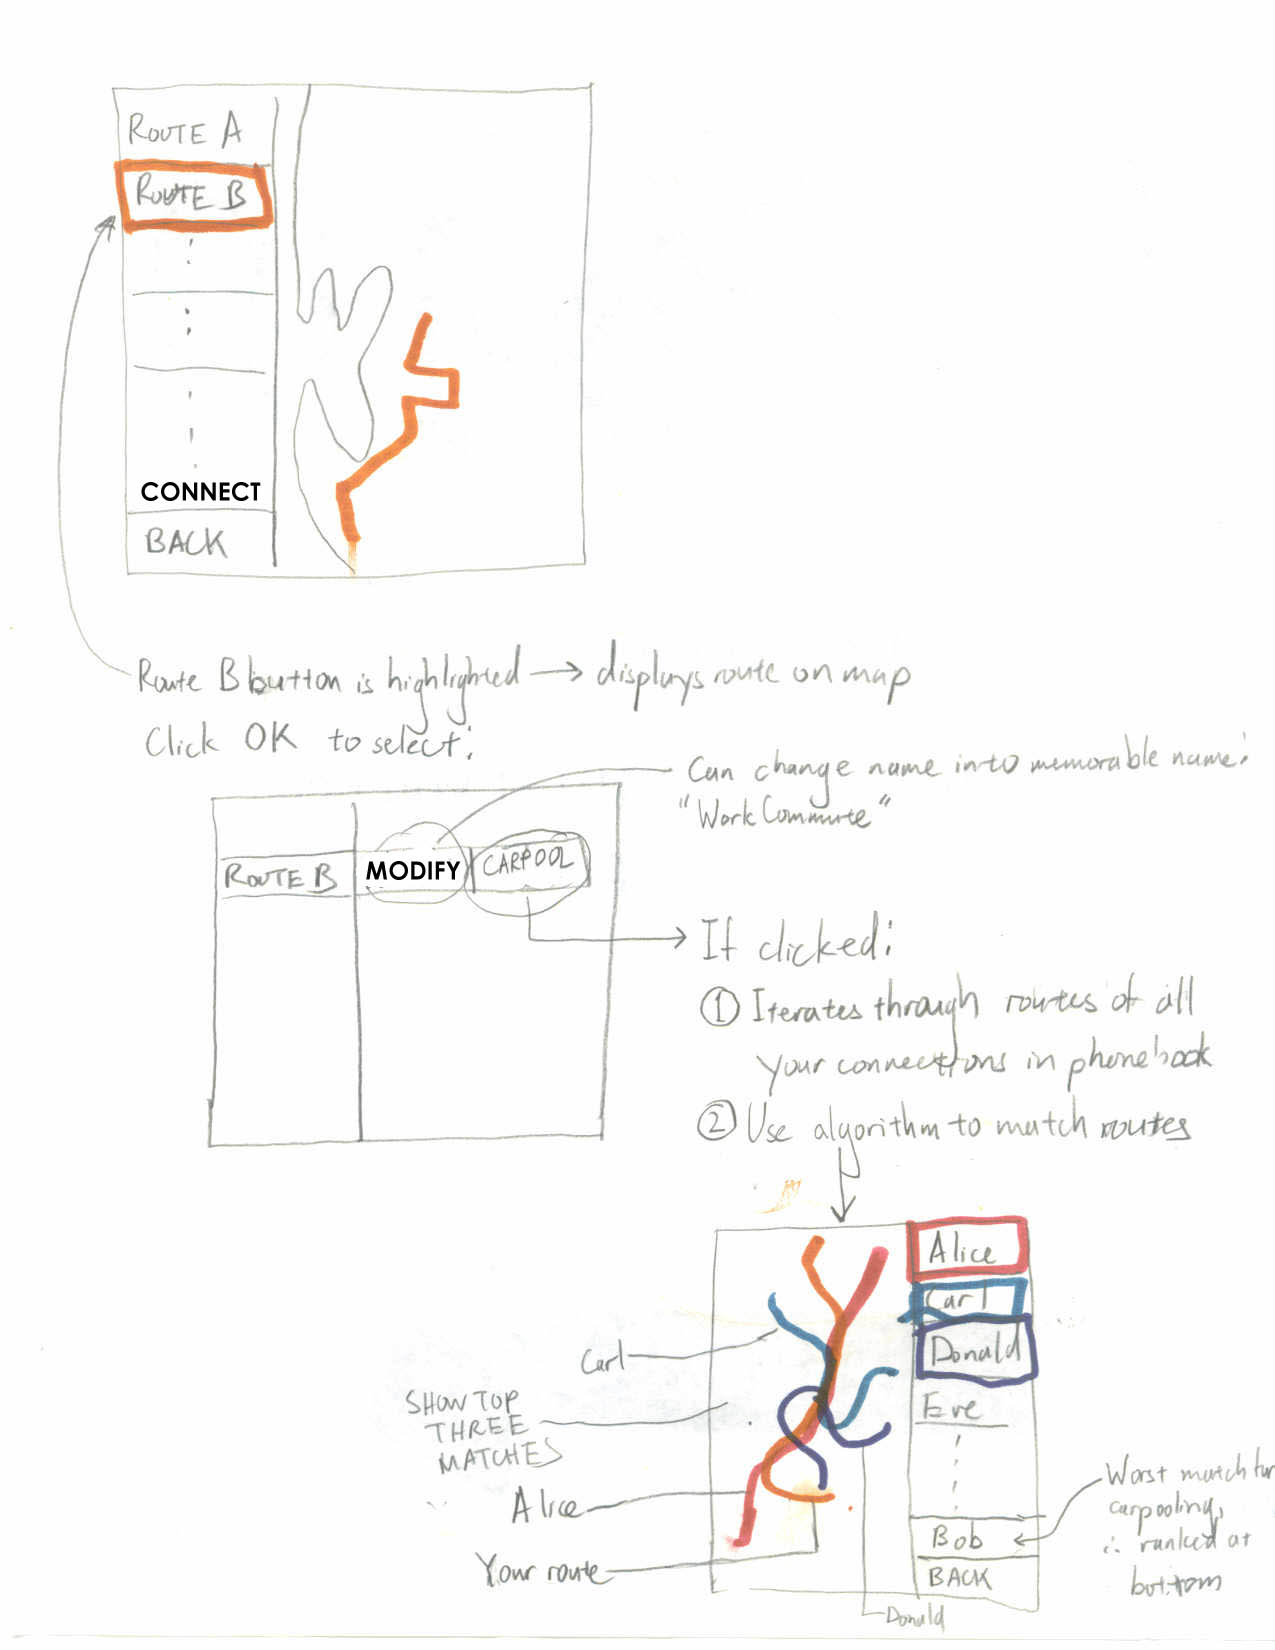 ROUTE A
ROUTE B
CONNECT
BACK
Route B button is highlighted → displays route on map
Click OK to select:
Can change name into memorable name:
"Work Commute"
ROUTE B MODIFY CARPOOL
If clicked:
① Iterates through routes of all
your connections in phonebook
② Use algorithm to match routes
Alice
Carl
Donald
Eve
Bob
BACK
Carl
SHOW TOP
THREE
MATCHES
Alice
Your route
Donald
Worst match for
carpooling,
∴ ranked at
bottom